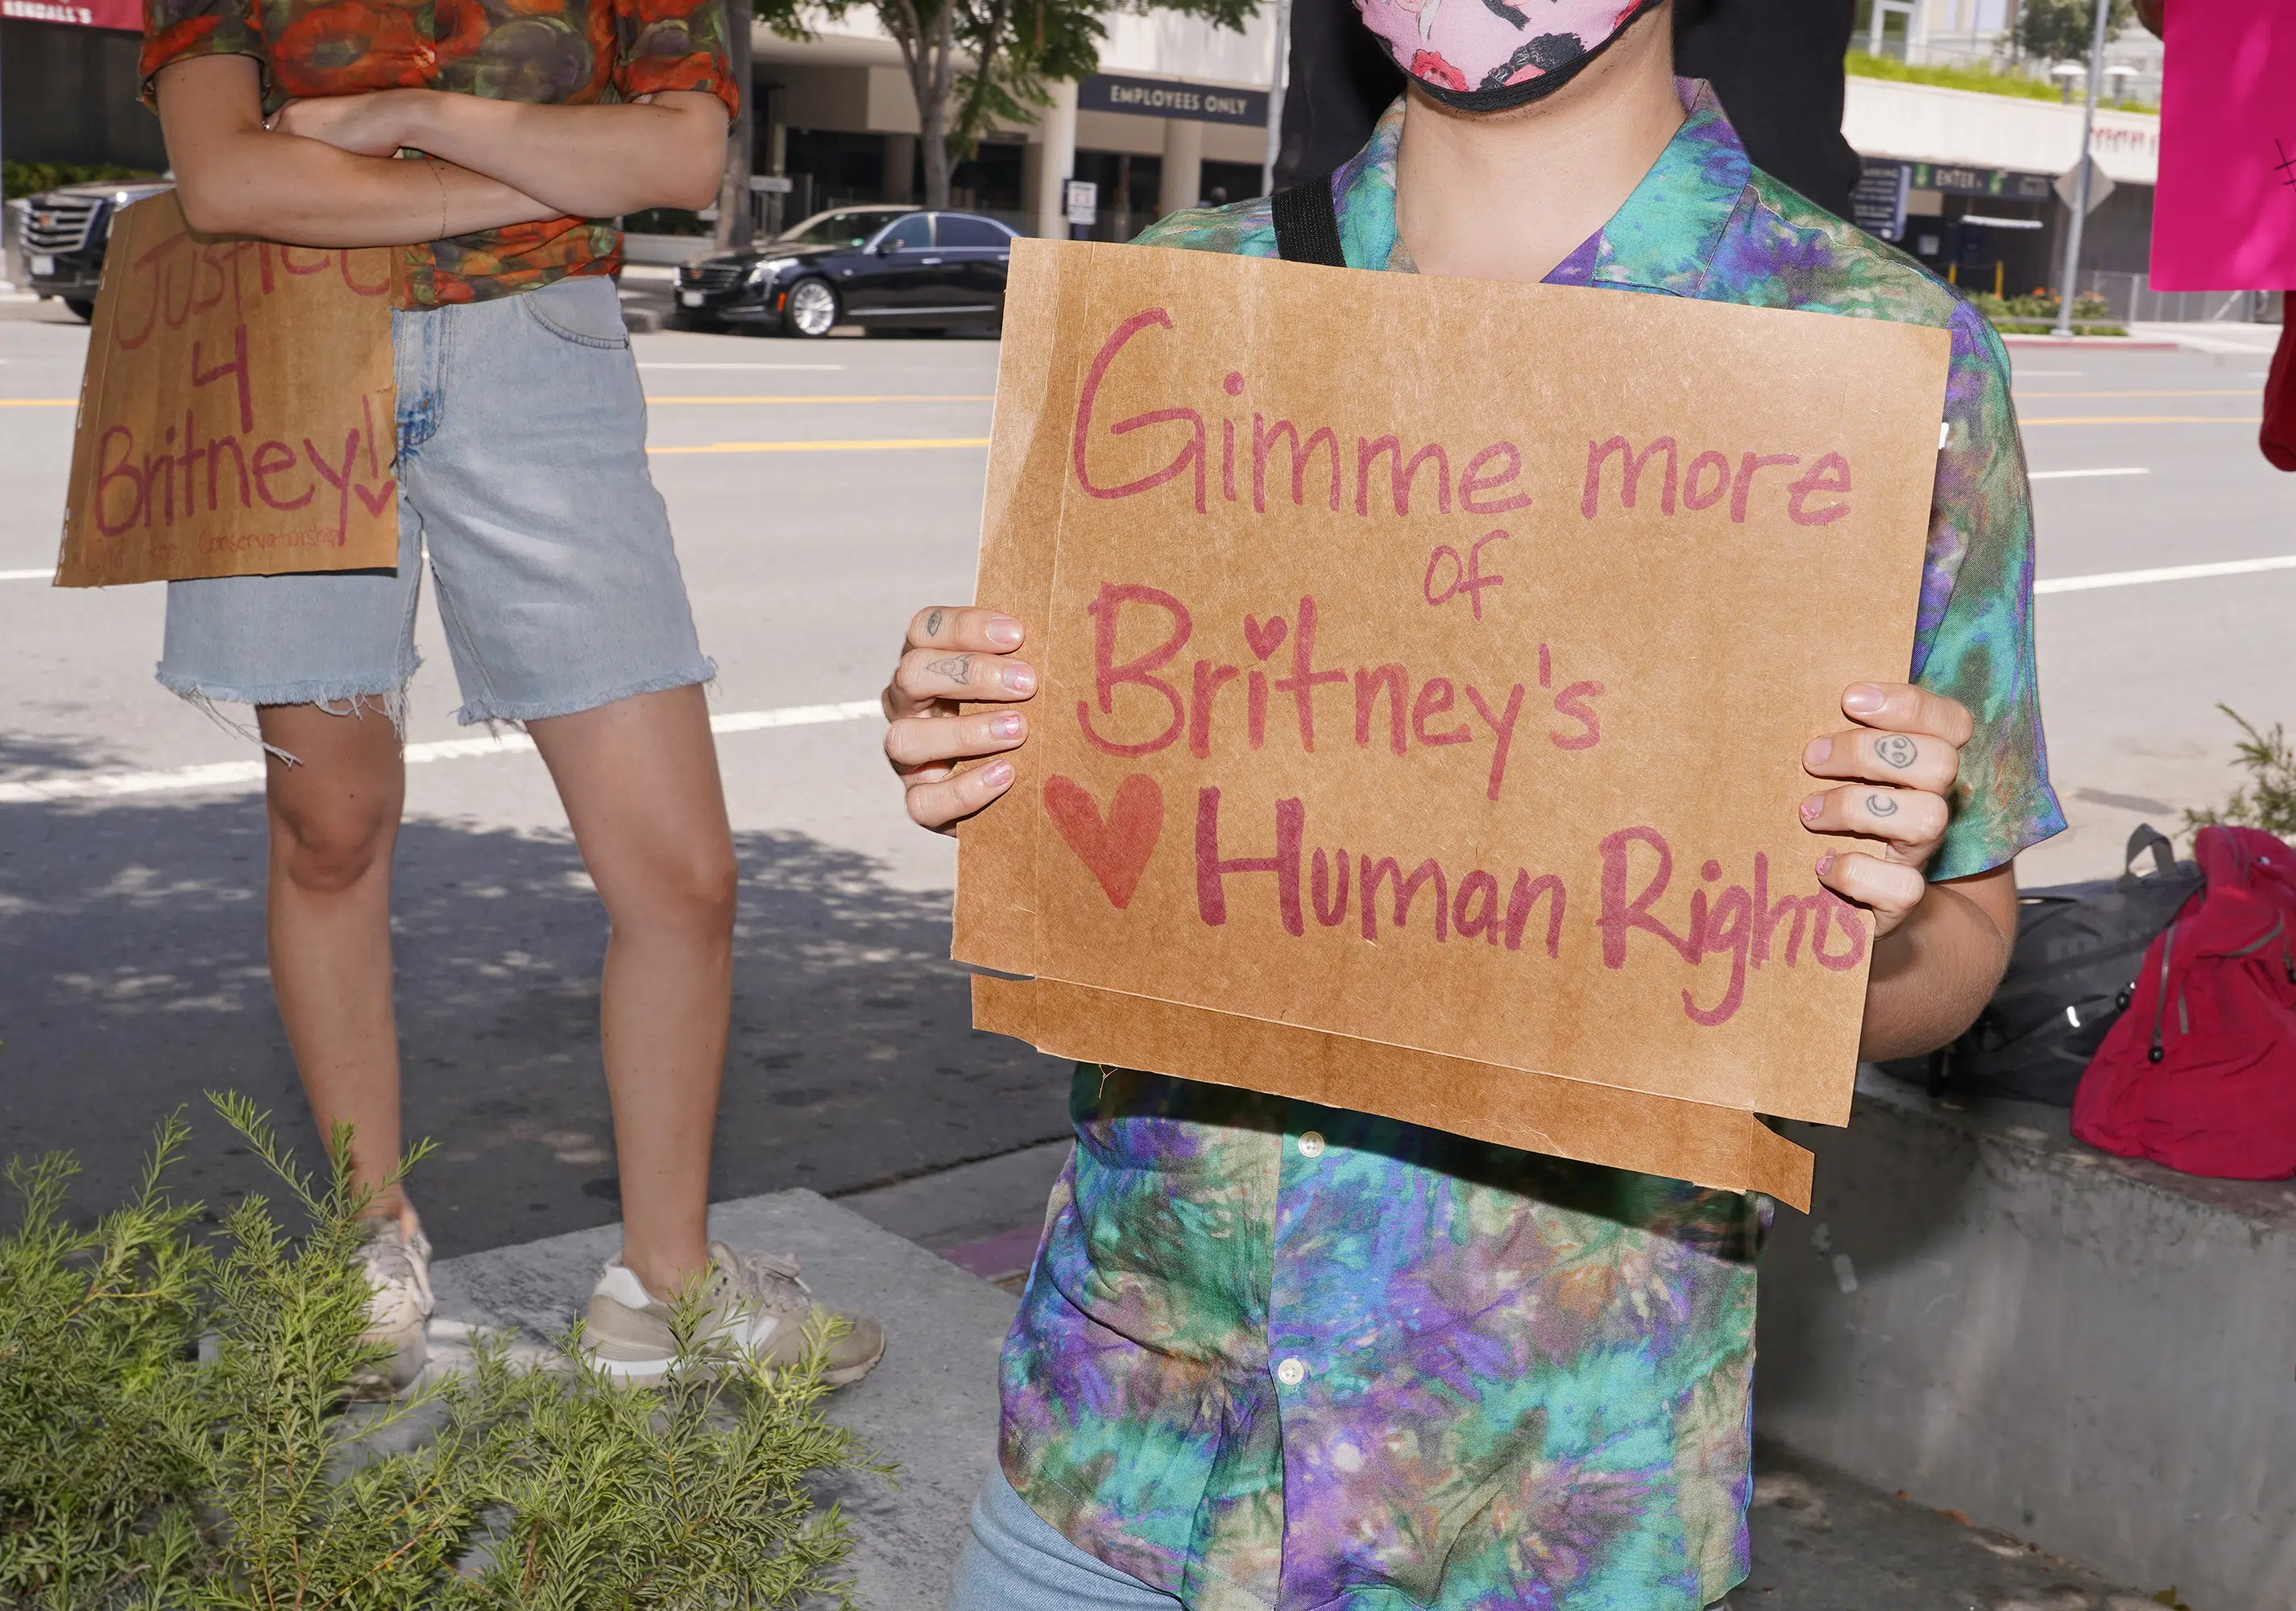 KENDALL'S
EMPLOYEES ONLY
ENTER
Justice
4
Britney!
End the Conservatorship
Gimme more
of
Britney's
Human Rights
#